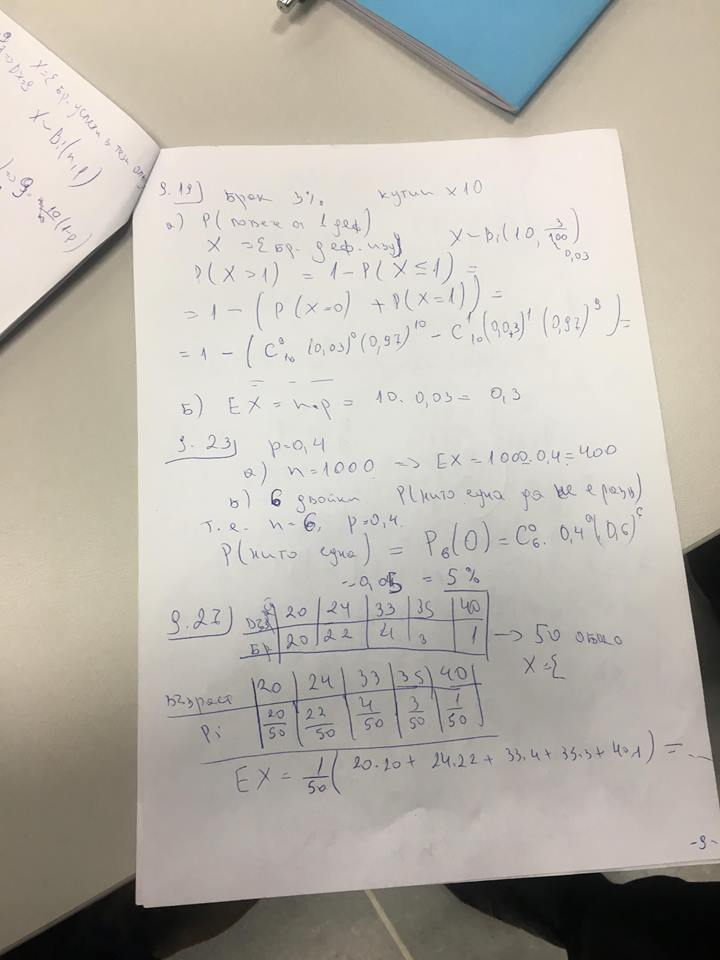 X={ бр. успехи в тези опити
X~Bi(n,p)
9.19) Брак 3%. кутии x10
а) P(повече от 1 деф)
X={бр. деф. изд} X~Bi(10, 3/100)
0,03
P(X>1) = 1-P(X≤1) =
=1-(P(X=0)+P(X=1))=
=1-(C⁰₁₀ (0,03)⁰(0,97)¹⁰ - C¹₁₀(0,03)¹(0,97)⁹)=
= - —
Б) EX = n.p = 10.0,03 = 0,3
9.23) p=0,4
а) n=1000 => EX=1000.0,4=400
б) 6 двойки P(нито една да не е разв)
т.е. n=6, p=0,4.
P(нито една) = P₆(0)=C⁰₆.0,4⁰(0,6)⁶
~0,05 = 5%
9.27) 20 | 24 | 33 | 35 | 40
Бр. 20 | 22 | 4 | 3 | 1 → 50 общо
X={
възраст | 20 | 24 | 33 | 35 | 40
Pi | 20/50 | 22/50 | 4/50 | 3/50 | 1/50
EX = 1/50(20.20+24.22+33.4+35.3+40.1) = ...
-9-